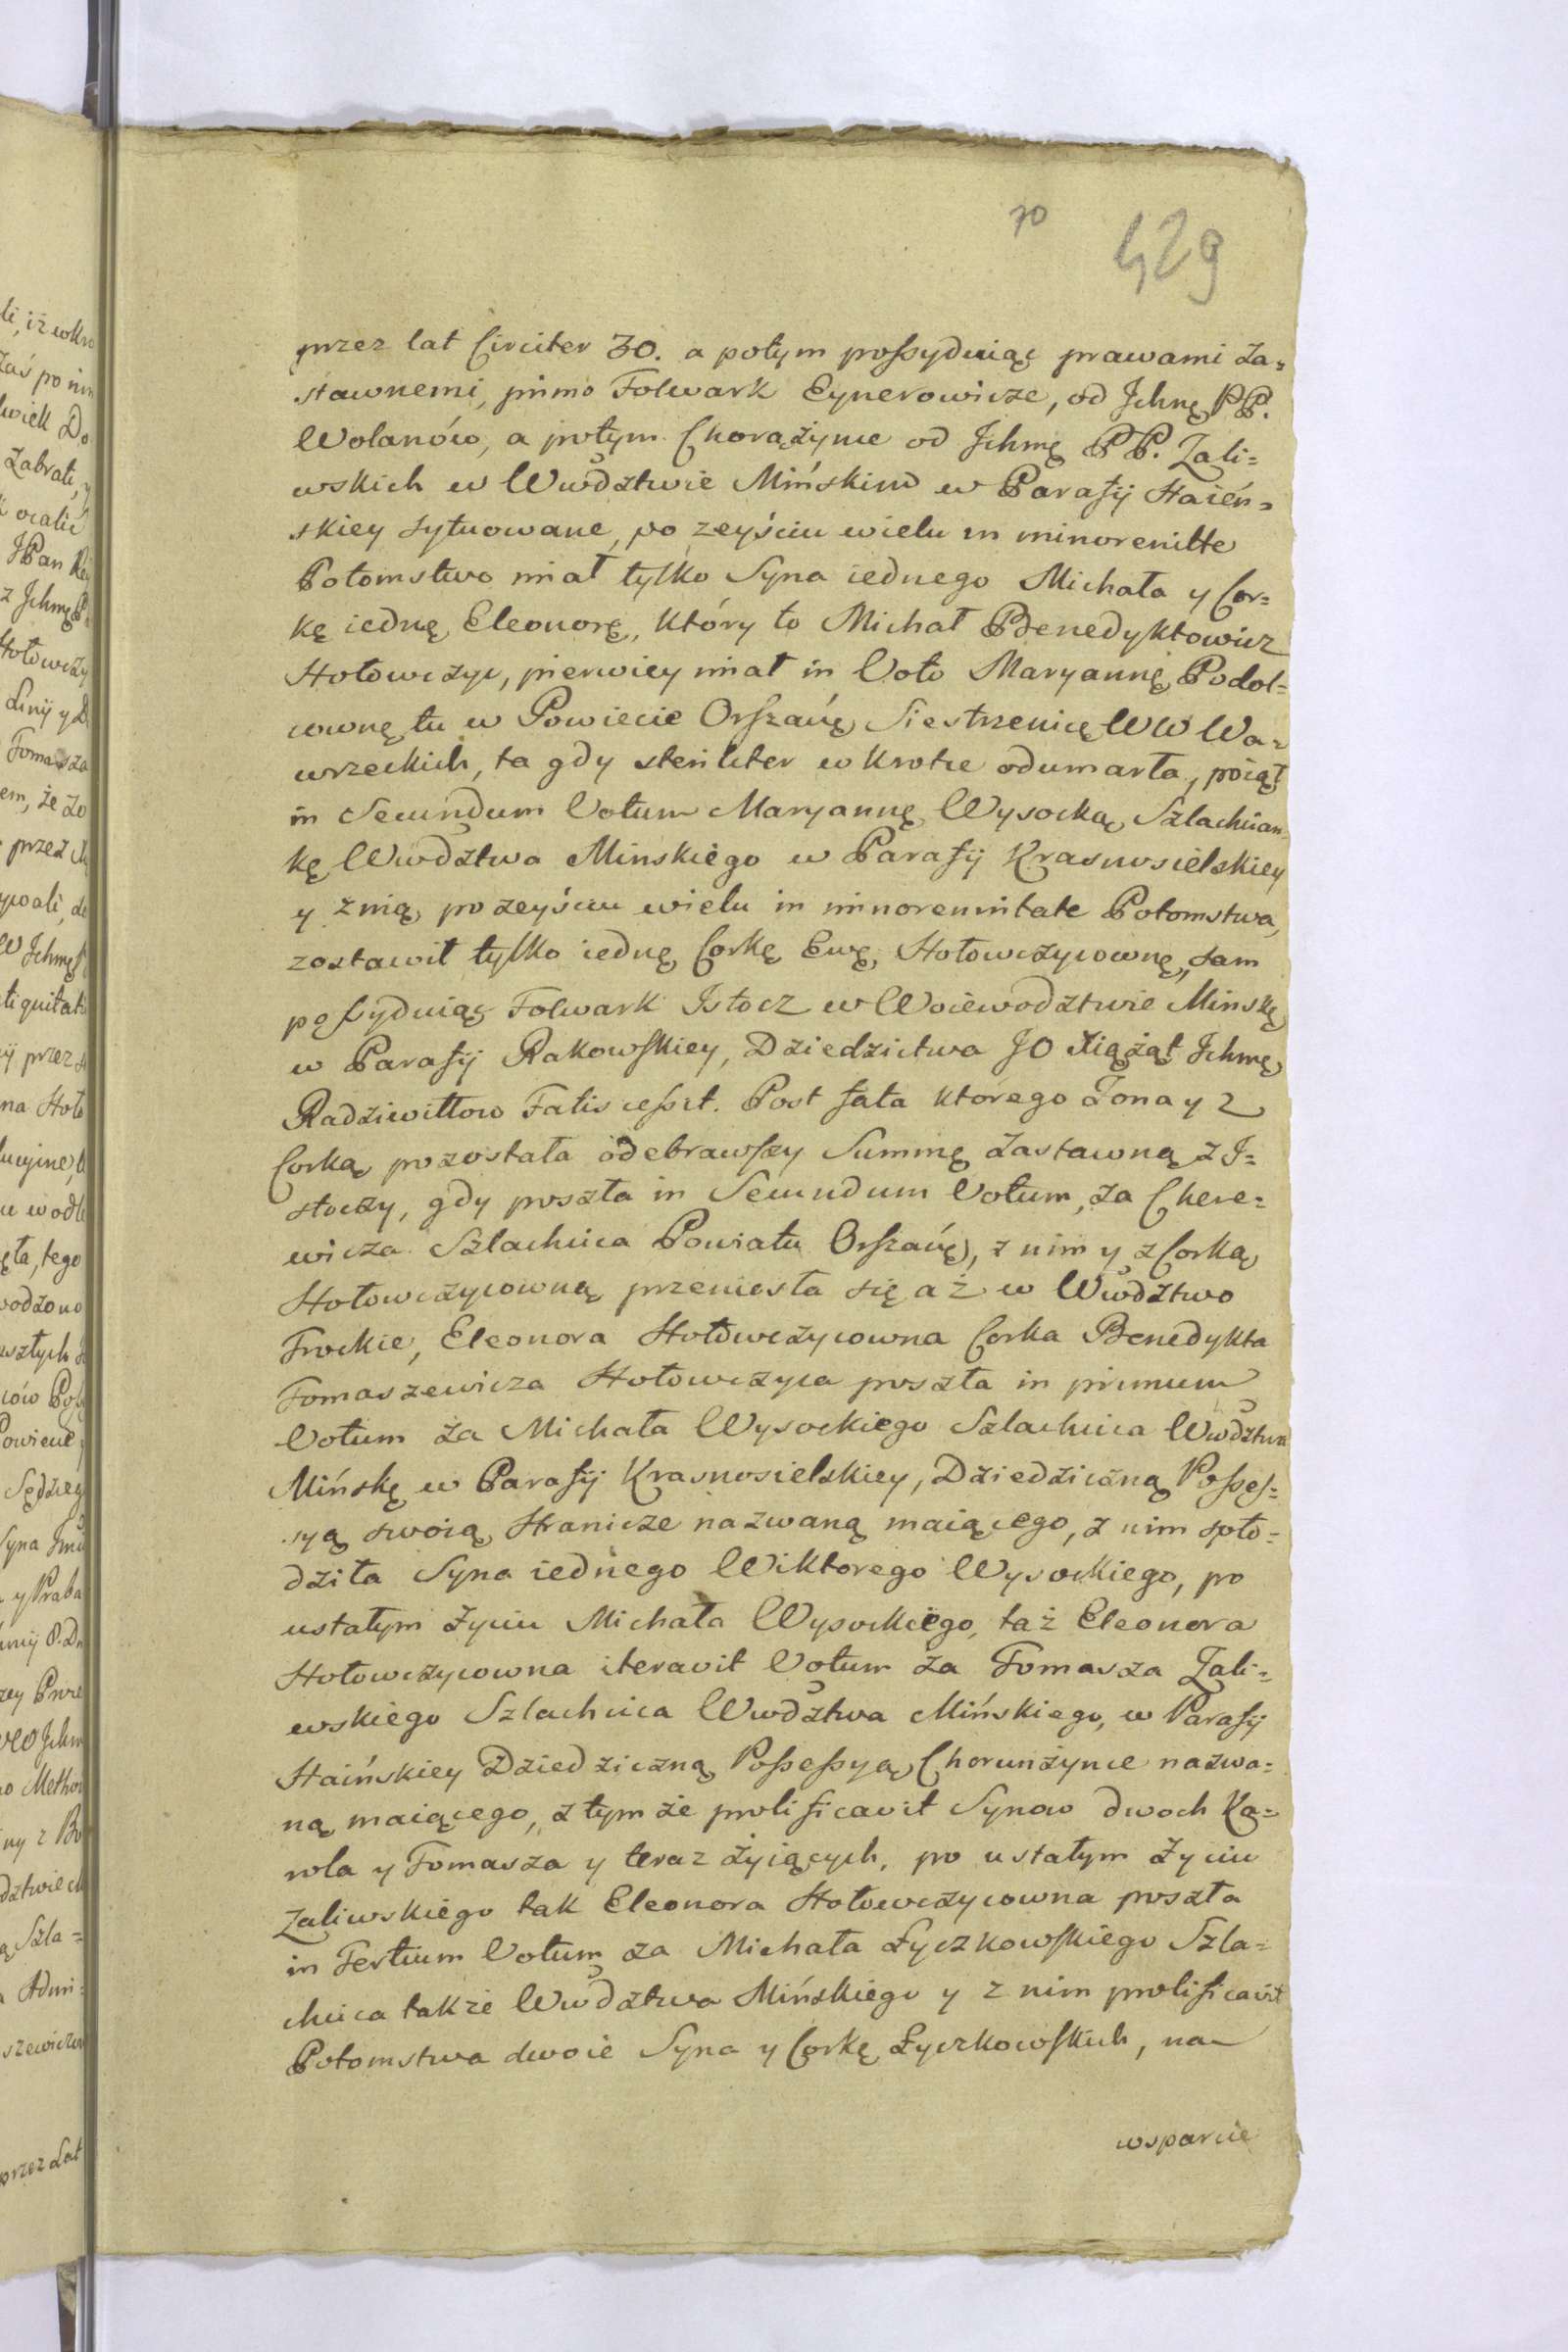 70
429
przez lat Circiter 30. a potym possyduiąc prawami Za=
stawnemi, primo Folwark Eynerowicze, od Jchmę PP.
Wolanów, a potym Chorążynce od Jchmę PP. Zali=
wskich w Wwdztwie Mińskim w Parafij Haień=
skiey sytuowane, po zeyściu wielu in minorenitte
Potomstwo miał tylko Syna iednego Michała y Cor=
kę iednę Eleonorę, który to Michał Benedyktowicz
Hołowczyc, pierwiey miał in Voto Maryannę Podol=
cownę tu w Powiecie Orszańę Siestrzenicę WW Wa=
wrzeckich, ta gdy steriliter w krotce odumarła, poiął
in Secundum Votum Maryannę Wysocką Szlachcian=
kę Wwdztwa Minskiego w Parafij Krasnosielskiey
y z nią po zeyściu wielu in minorennitate Potomstwa,
zostawił tylko iednę Corkę Ewę Hołowczycownę, sam
possyduiąc Folwark Istocz w Woiewodztwie Minskę
w Parafij Rakowskiey, Dziedzictwa JO Xiążąt Jchmę
Radziwiłłow Fatis cessit. Post fata ktorego Żona y z
Corką pozostała odebrawszy Summę Zastawną z J=
stoczy, gdy poszła in Secundum Votum, za Chere=
wicza Szlachcica Powiatu Orszańę, z nim y z Corką
Hołowczycowną przeniesła się aż w Wwdztwo
Trockie, Eleonora Hołowczycowna Corka Benedykta
Tomaszewicza Hołowczyca poszła in primum
Votum za Michała Wysockiego Szlachcica Wwdztwa
Mińskę w Parafij Krasnosielskiey, Dziedziczną Posses=
syą swoią Hranicze nazwaną maiącego, z nim spło=
dziła Syna iednego Wiktorego Wysockiego, po
ustałym Życiu Michała Wysockiego, taż Eleonora
Hołowczycowna iteravit Votum za Tomasza Zali=
wskiego Szlachcica Wwdztwa Mińskiego, w Parafij
Haińskiey Dziedziczną Possessyą Chorunżynce nazwa=
ną maiącego, z tym że prolificavit Synow dwoch Ka=
rola y Tomasza y teraz żyiących, po ustałym Życiu
Zaliwskiego tak Eleonora Hołowczycowna poszła
in Tertium Votum za Michała Łyczkowskiego Szla=
chcica także Wwdztwa Mińskiego y z nim prolificavit
Potomstwa dwoie Syna y Corkę Łyczkowskich, na
wsparcie